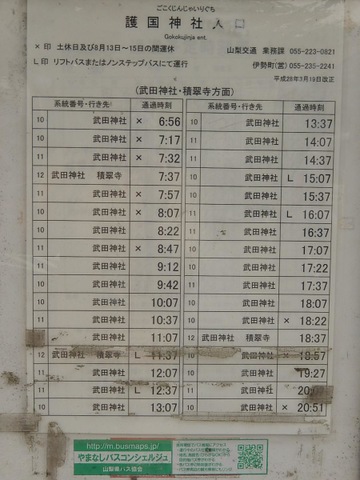 ごこくじんじゃいりぐち
護国神社入口
Gokokujinja ent.
×印 土休日及び8月13日～15日の間運休
L印 リフトバスまたはノンステップバスにて運行
山梨交通 業務課 055-223-0821
伊勢町(営) 055-235-2241
平成28年3月19日改正
(武田神社・積翠寺方面)
系統番号・行き先 通過時刻
10 武田神社 × 6:56
10 武田神社 × 7:17
11 武田神社 × 7:32
12 武田神社 積翠寺 7:37
11 武田神社 × 7:57
10 武田神社 × 8:07
10 武田神社 8:22
11 武田神社 × 8:47
11 武田神社 9:12
10 武田神社 9:42
10 武田神社 10:07
11 武田神社 10:37
11 武田神社 11:07
12 武田神社 積翠寺 L 11:37
11 武田神社 12:07
11 武田神社 L 12:37
10 武田神社 13:07
系統番号・行き先 通過時刻
10 武田神社 13:37
11 武田神社 14:07
11 武田神社 14:37
10 武田神社 L 15:07
10 武田神社 15:37
11 武田神社 L 16:07
11 武田神社 16:37
10 武田神社 17:07
10 武田神社 17:22
11 武田神社 17:37
10 武田神社 18:07
10 武田神社 × 18:22
12 武田神社 積翠寺 18:37
10 武田神社 × 18:57
10 武田神社 19:27
11 武田神社
10 武田神社 × 20:51
http://m.busmaps.jp/
やまなしバスコンシェルジュ
山梨県バス協会